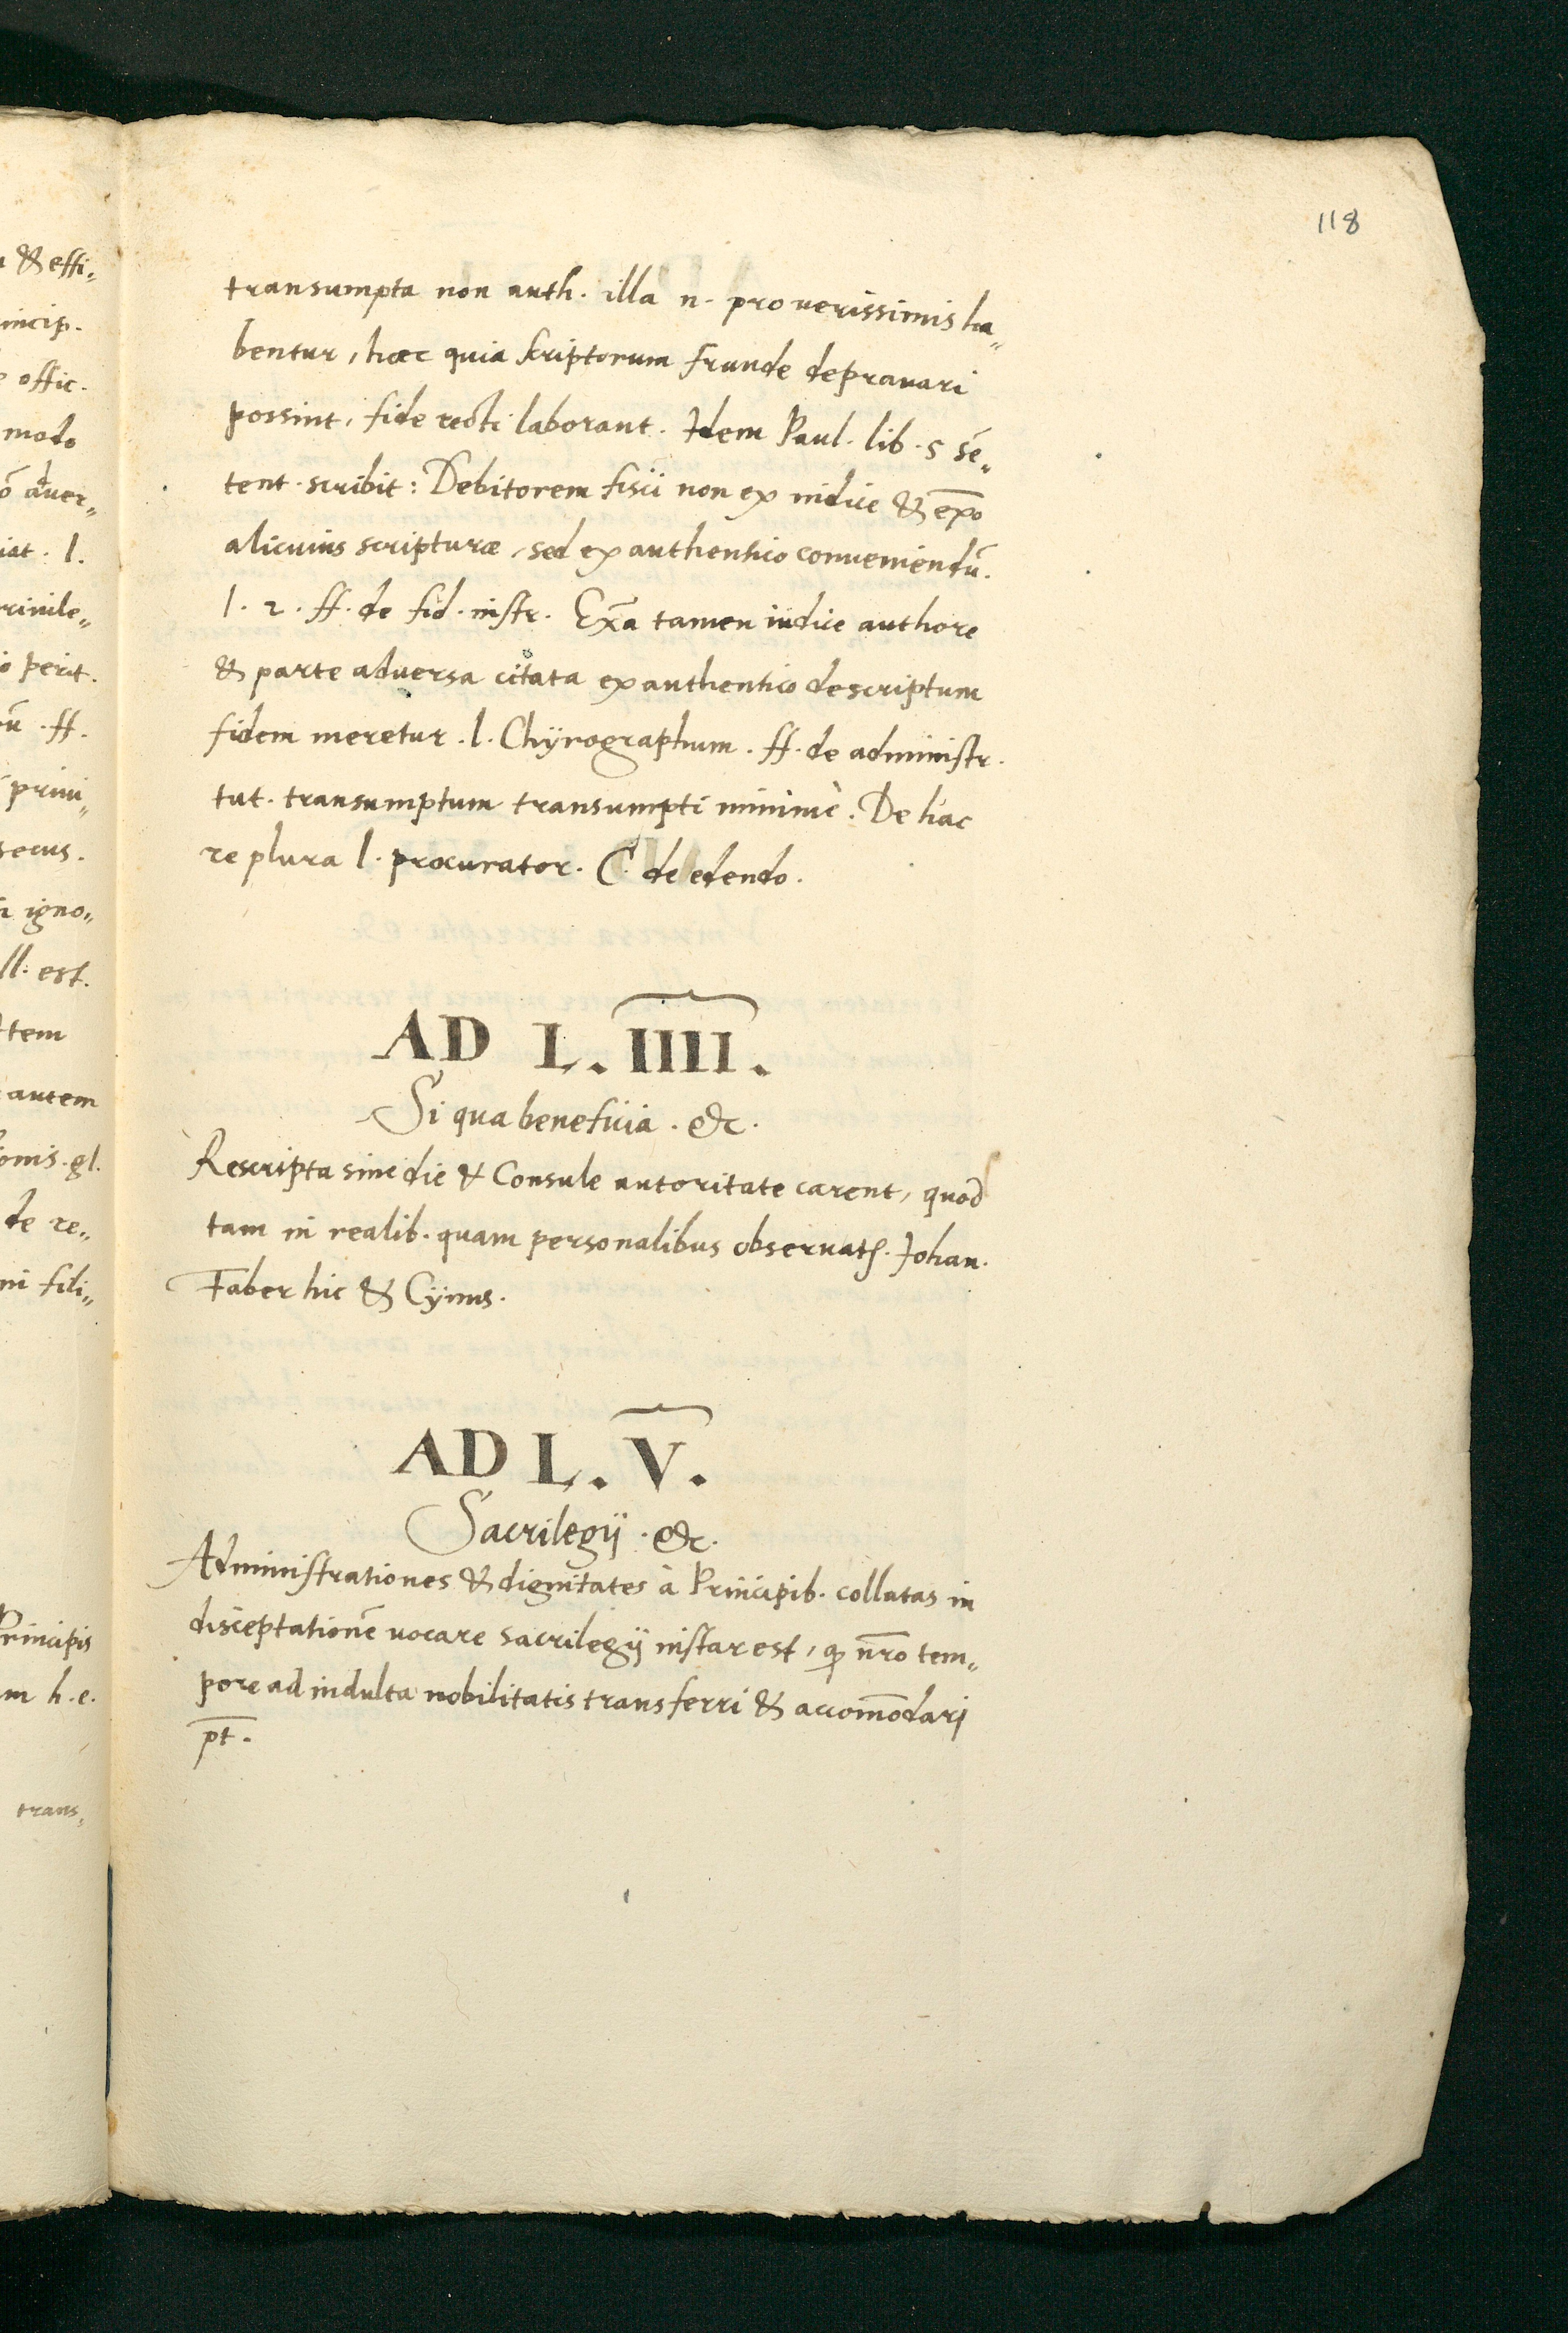 118
transumpta non auth. illa n. pro verissimis ha„
bentur, hæc quia scriptorum fraude deprauari
possint, fide recti laborant. Idem Paul. lib. 5 sē„
tent. scribit: Debitorem fisci non ex indice & exēpo
alicuius scripturæ, sed ex authentico conueniendū.
l. 2. ff. de fid. instr. Exēa tamen iudice authore
& parte adversa citata ex authentico descriptum
fidem meretur. l. Chÿrographum. ff. de administr.
tut. transumptum transumpti minimè. De hac
re plura l. procurator. C. de edendo.
AD L. IIII.
Si qua beneficia. &c.
Rescripta sine die & Consule autoritate carent, quod
tam in realib. quam personalibus obseruatꝭ. Johan.
Faber hic & Cÿnus.
AD L. V.
Sacrilegij. &c.
Administrationes & dignitates à Principib. collatas in
disceptationē uocare sacrilegij instar est, qđ nr̄o tem„
pore ad indulta nobilitatis transferri & accom̄odari
pt̄.
& effi„
incip.
offic.
modo
adver„
iat. l.
riuile„
perit.
ff.
priui„
secus.
igno„
ll. est.
Item
autem
onis. gl.
de re„
ni fili„
Principis
m h. e.
trans„